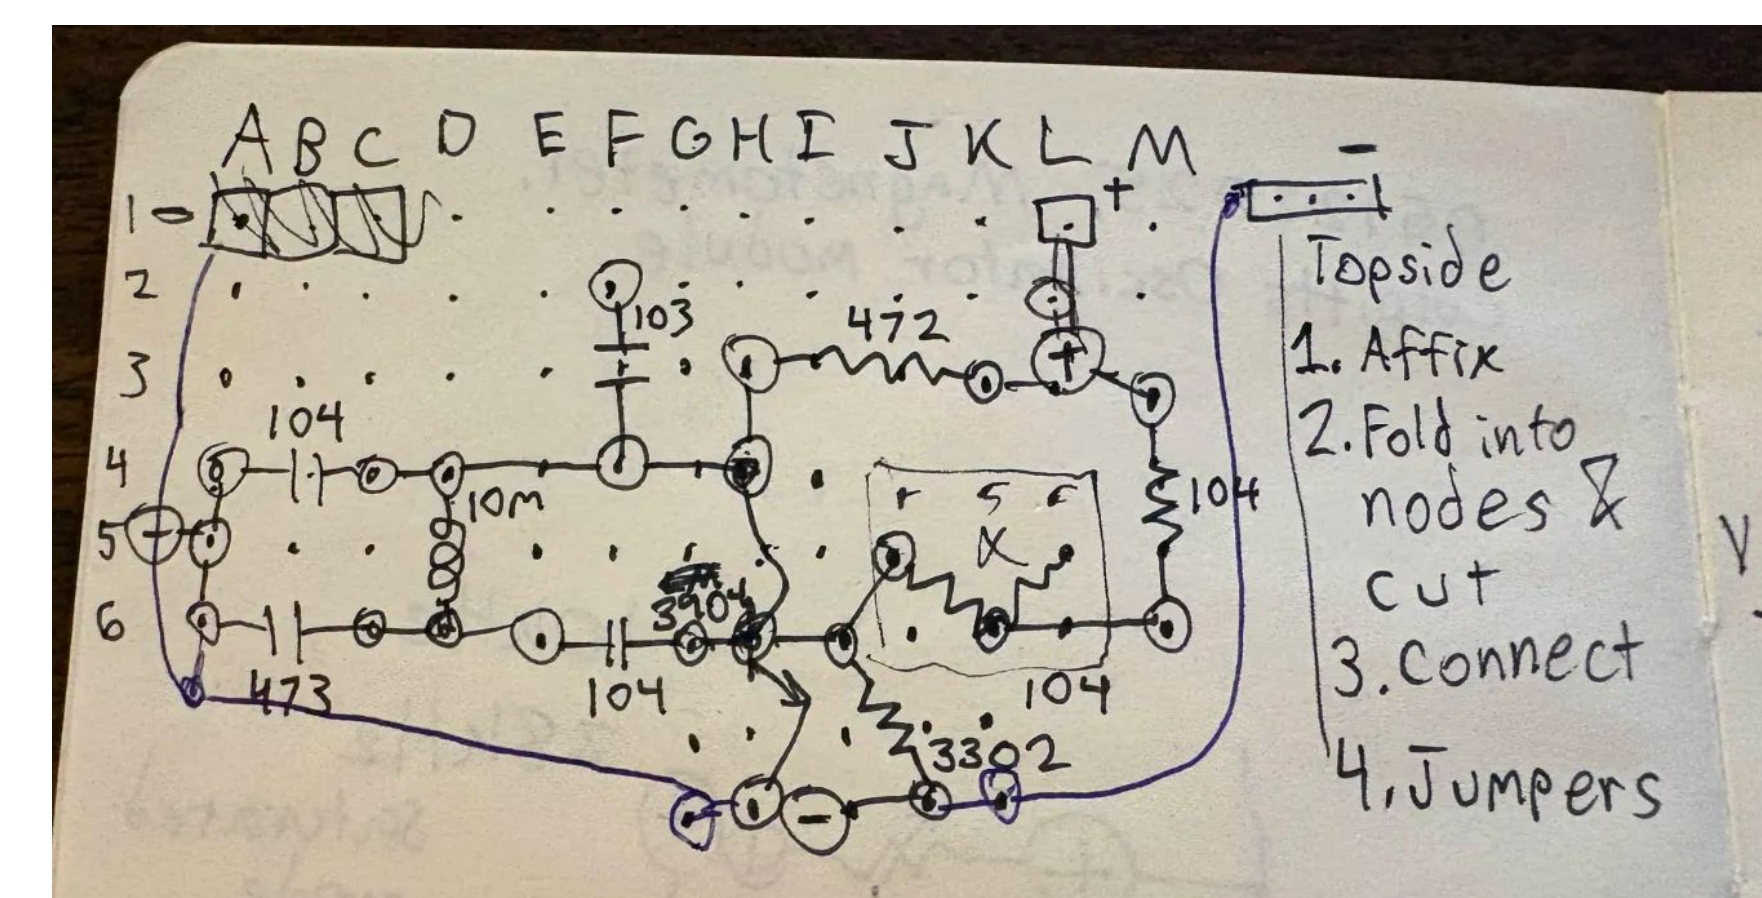 A B C D E F G H I J K L M
1 - + -
2
103
472
3 +
104
4
10M
104
5 -
3904
6
473
104
104
3302
-
Topside
1. Affix
2. Fold into
nodes &
cut
3. Connect
4. Jumpers